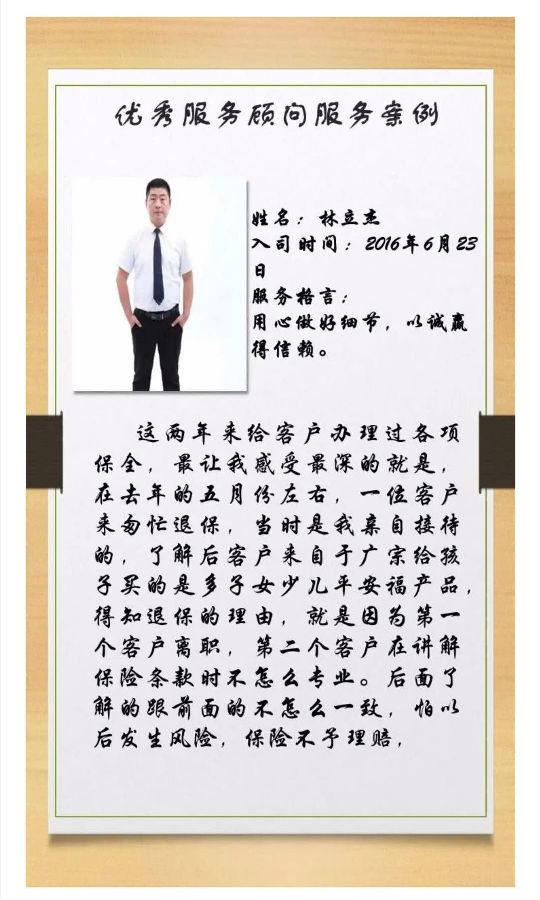 优秀服务顾问服务案例
姓名：林立杰
入司时间：2016年6月23
日
服务格言：
用心做好细节，以诚赢
得信赖。
这两年来给客户办理过各项
保全，最让我感受最深的就是，
在去年的五月份左右，一位客户
来匆忙退保，当时是我亲自接待
的，了解后客户来自于广宗给孩
子买的是多子女少儿平安福产品，
得知退保的理由，就是因为第一
个客户离职，第二个客户在讲解
保险条款时不怎么专业。后面了
解的跟前面的不怎么一致，怕以
后发生风险，保险不予理赔，